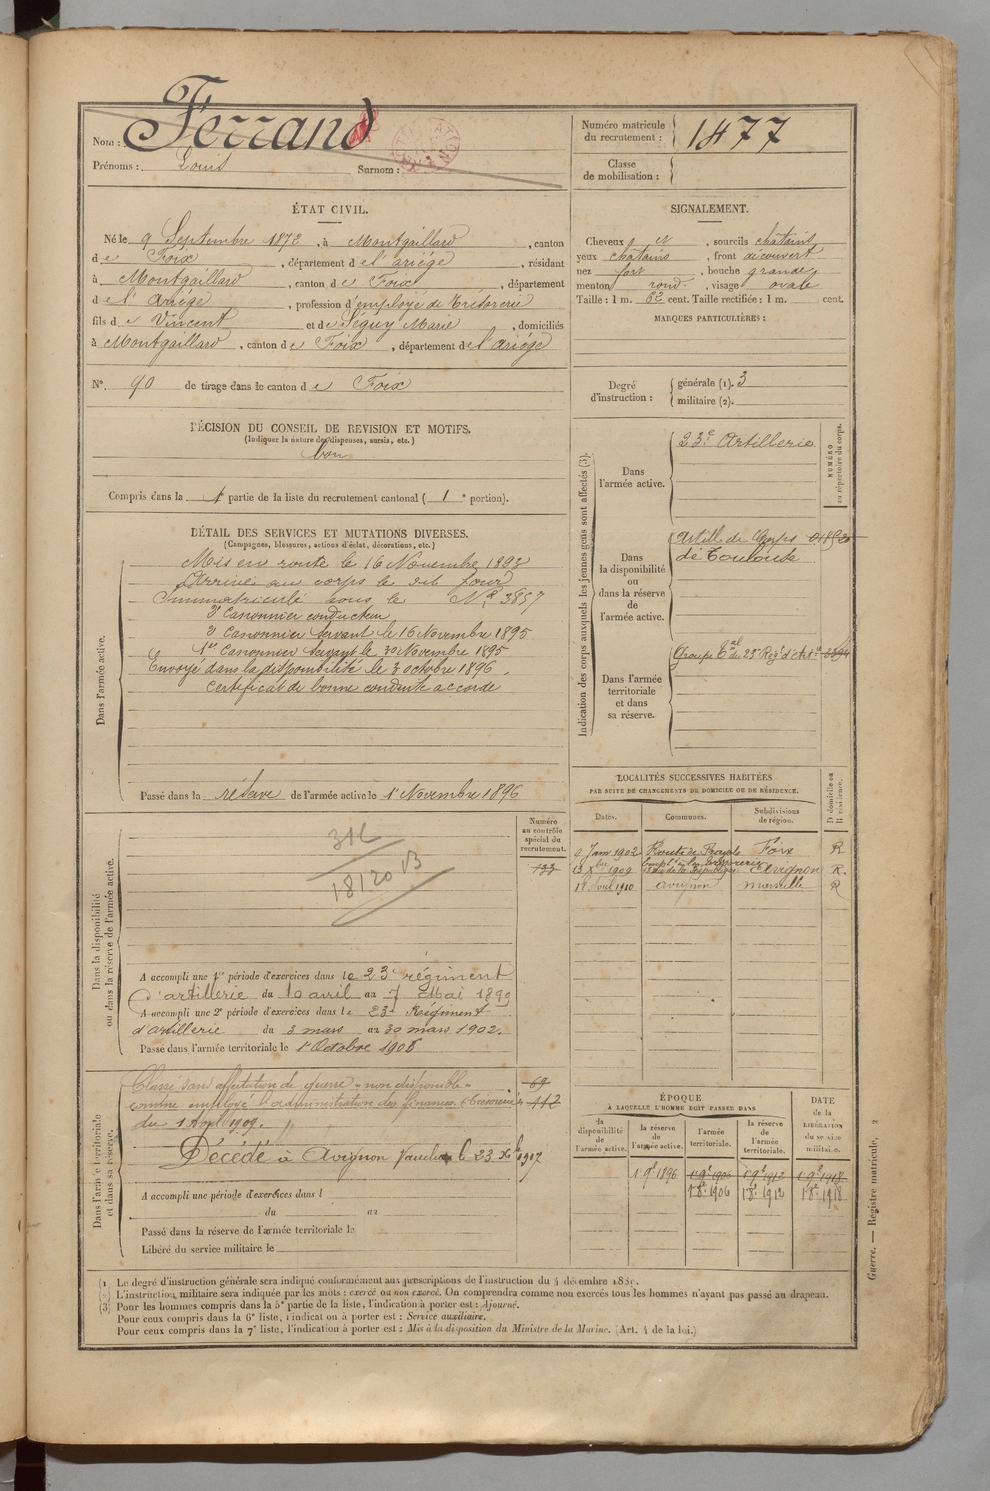 Nom : Ferrand
Prénoms : Louis Surnom :
Numéro matricule du recrutement : 1477
Classe de mobilisation :
ÉTAT CIVIL.
Né le 9 Septembre 1872, à Montgaillard, canton
de Foix, département de l'ariège, résidant
à Montgaillard, canton de Foix, département
de l'Ariège, profession d'employé de trésorerie
fils de Vincent et de Séguy Marie, domiciliés
à Montgaillard, canton de Foix, département de l'ariège
N° 90 de tirage dans le canton de Foix
SIGNALEMENT.
Cheveux et, sourcils chatains
yeux chatains, front découvert
nez fort, bouche grande
menton rond, visage ovale
Taille : 1 m. 62 cent. Taille rectifiée : 1 m. cent.
MARQUES PARTICULIÈRES :
Degré d'instruction : générale (1). 3
militaire (2).
DÉCISION DU CONSEIL DE REVISION ET MOTIFS.
(Indiquer la nature des dispenses, sursis, etc.)
bon
Compris dans la 1e partie de la liste du recrutement cantonal (1e portion).
DÉTAIL DES SERVICES ET MUTATIONS DIVERSES.
(Campagnes, blessures, actions d'éclat, décorations, etc.)
Dans l'armée active.
Mis en route le 16 Novembre 1893
Arrivé au corps le dit jour
Immatriculé sous le N° 3857
2e Canonnier conducteur
2e Canonnier servant le 16 Novembre 1895
1er Canonnier servant le 30 Novembre 1895
Envoyé dans la disponibilité le 3 octobre 1896.
Certificat de bonne conduite accordé
Passé dans la réserve de l'armée active le 1 Novembre 1896
Indication des corps auxquels les jeunes gens sont affectés (3).
NUMÉRO au répertoire du corps.
Dans l'armée active.
23e Artillerie
Dans la disponibilité ou dans la réserve de l'armée active.
Artill. de Corps
de Toulouse
Dans l'armée territoriale et dans sa réserve.
Groupe tal du 23e Régt d'Artie
LOCALITÉS SUCCESSIVES HABITÉES
PAR SUITE DE CHANGEMENTS DE DOMICILE OU DE RÉSIDENCE.
D domicile ou R résidence.
Dates. Communes. Subdivisions de région.
Janv 1902 Foix R
1909 Avignon R.
18 Avril 1910 avignon marseille R
Dans la disponibilité ou dans la réserve de l'armée active.
Numéro au contrôle spécial du recrutement.
133
316
18120 B
A accompli une 1re période d'exercices dans le 23e régiment
d'artillerie du 10 avril au 7 Mai 1899
A accompli une 2e période d'exercices dans le 23e Régiment
d'artillerie du 3 mars au 30 mars 1902.
Passé dans l'armée territoriale le 1 Octobre 1906
Dans l'armée territoriale et dans sa réserve.
Classé sans affectation de guerre "non disponible"
comme employé l'administration des finances (Trésorerie)
du 1 Avril 1909.
69
112
Décédé à Avignon Vaucluse le 23 Xbre 1917
A accompli une période d'exercices dans l
du au
Passé dans la réserve de l'armée territoriale le
Libéré du service militaire le
ÉPOQUE
À LAQUELLE L'HOMME DOIT PASSER DANS
la disponibilité de l'armée active.
la réserve de l'armée active.
l'armée territoriale.
la réserve de l'armée territoriale.
DATE de la LIBÉRATION du service militaire.
1 9e 1896 1 9e 1906 1 9e 1912 1 9e 1918
1 8e 1906 1 8e 1912 1 8e 1918
(1) Le degré d'instruction générale sera indiqué conformément aux prescriptions de l'instruction du 4 décembre 1889.
(2) L'instruction militaire sera indiquée par les mots : exercé ou non exercé. On comprendra comme non exercés tous les hommes n'ayant pas passé au drapeau.
(3) Pour les hommes compris dans la 5e partie de la liste, l'indication à porter est : Ajourné.
Pour ceux compris dans la 6e liste, l'indication à porter est : Service auxiliaire.
Pour ceux compris dans la 7e liste, l'indication à porter est : Mis à la disposition du Ministre de la Marine. (Art. 4 de la loi.)
Guerre. — Registre matricule, 2